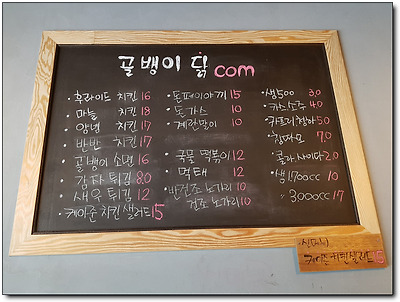 골뱅이 닭 com
· 후라이드 치킨 16
마늘 치킨 18
양념 치킨 17
반반 치킨 17
· 골뱅이 소면 16
감자튀김 8.0
새우 튀김 12
· 케이준 치킨 샐러드 15
· 돈페이야끼 15
· 돈가스 10
· 계란말이 10
· 국물 떡볶이 12
· 먹태 12
· 반건조 노가리 10
건조 노가리 10
· 생500 3.0
· 카스 소주 4.0
5.0
7.0
· 콜라 사이다 2.0
· 생 1700cc 10
" 3000cc 17
케이준 치킨 샐러드 5